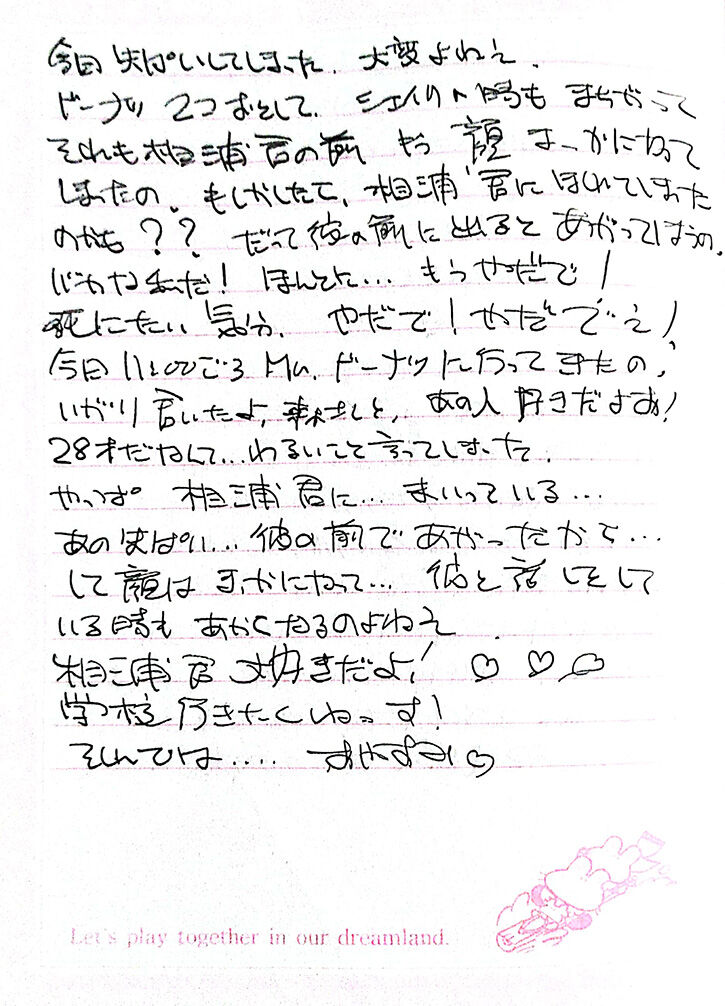 今日 失ぱいしてしまった. 大変よねえ.
ドーナツ 2つおとして. シェイクの時も まちがって
それも相浦君の前 もう 顔 まっかになって
しまったの。もしかしたて, 相浦君に ほれてしまった
のかも?? だって彼の前に出るとあがってしまうの.
ほんとに... もうやだで!
死にたい気分. やだで! やだでえ!
今日 11:00ごろ Mr. ドーナツに行ってきたの,
言いたよ, あの人好きだよお!
28才だなんて... わるいこと言ってしまって.
やっぱ 相浦君に... まいっている...
あの失ぱい... 彼の前であがったから...
して顔は まっかになって... 彼と話しをして
いる時も あかくなるのよねえ.
相浦君 大好きだよ! ♡ ♡ ♡
学校行きたくねっす!
そんでは.... おやすみ ♡
Let's play together in our dreamland.